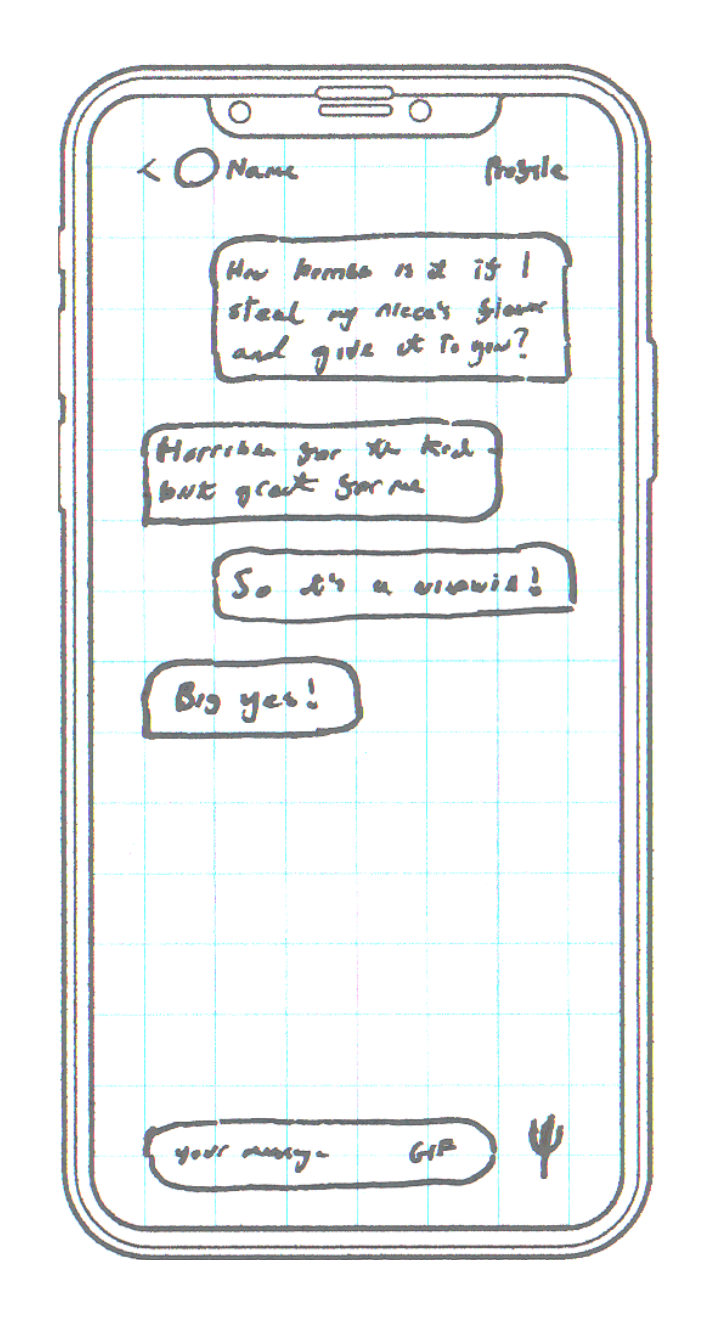 < Name Profile
How horrible is it if I
steal my niece's flower
and give it to you?
Horrible for the kid
but great for me
So it's a winwin!
Big yes!
your message GIF